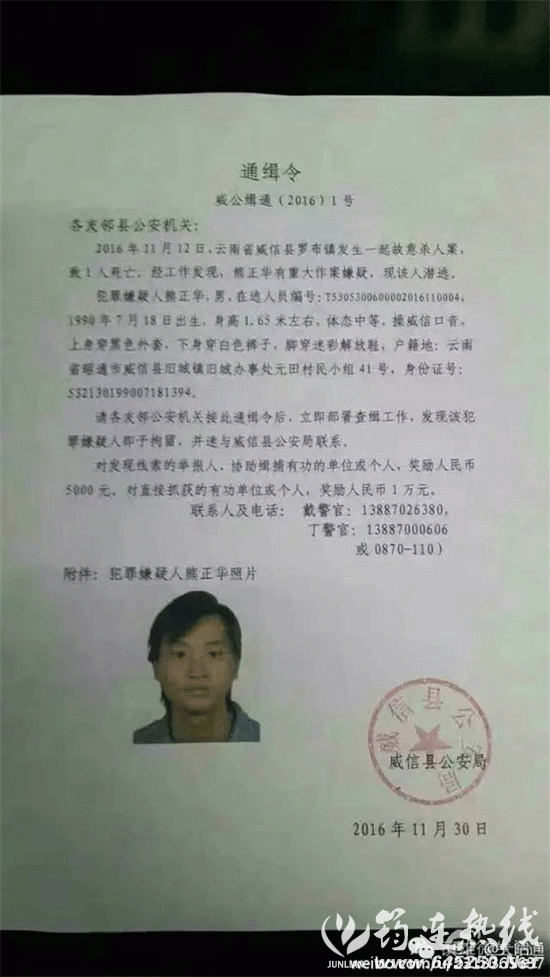 通缉令
威公缉通（2016）1号
各友邻县公安机关：
2016年11月12日，云南省威信县罗布镇发生一起故意杀人案，
致1人死亡。经工作发现，熊正华有重大作案嫌疑，现该人潜逃。
犯罪嫌疑人熊正华，男，在逃人员编号：T5305300600002016110004，
1990年7月18日出生，身高1.65米左右，体态中等，操威信口音，
上身穿黑色外套，下身穿白色裤子，脚穿迷彩解放鞋，户籍地：云南
省昭通市威信县旧城镇旧城办事处元田村民小组41号，身份证号：
532130199007181394。
请各友邻公安机关接此通缉令后，立即部署查缉工作，发现该犯
罪嫌疑人即予拘留，并速与威信县公安局联系。
对发现线索的举报人、协助缉捕有功的单位或个人，奖励人民币
5000元。对直接抓获的有功单位或个人，奖励人民币1万元。
联系人及电话：戴警官：13887026380，
丁警官：13887000606
或0870-110）
附件：犯罪嫌疑人熊正华照片
威信县公安局
威信县公安局
2016年11月30日
筠连热线